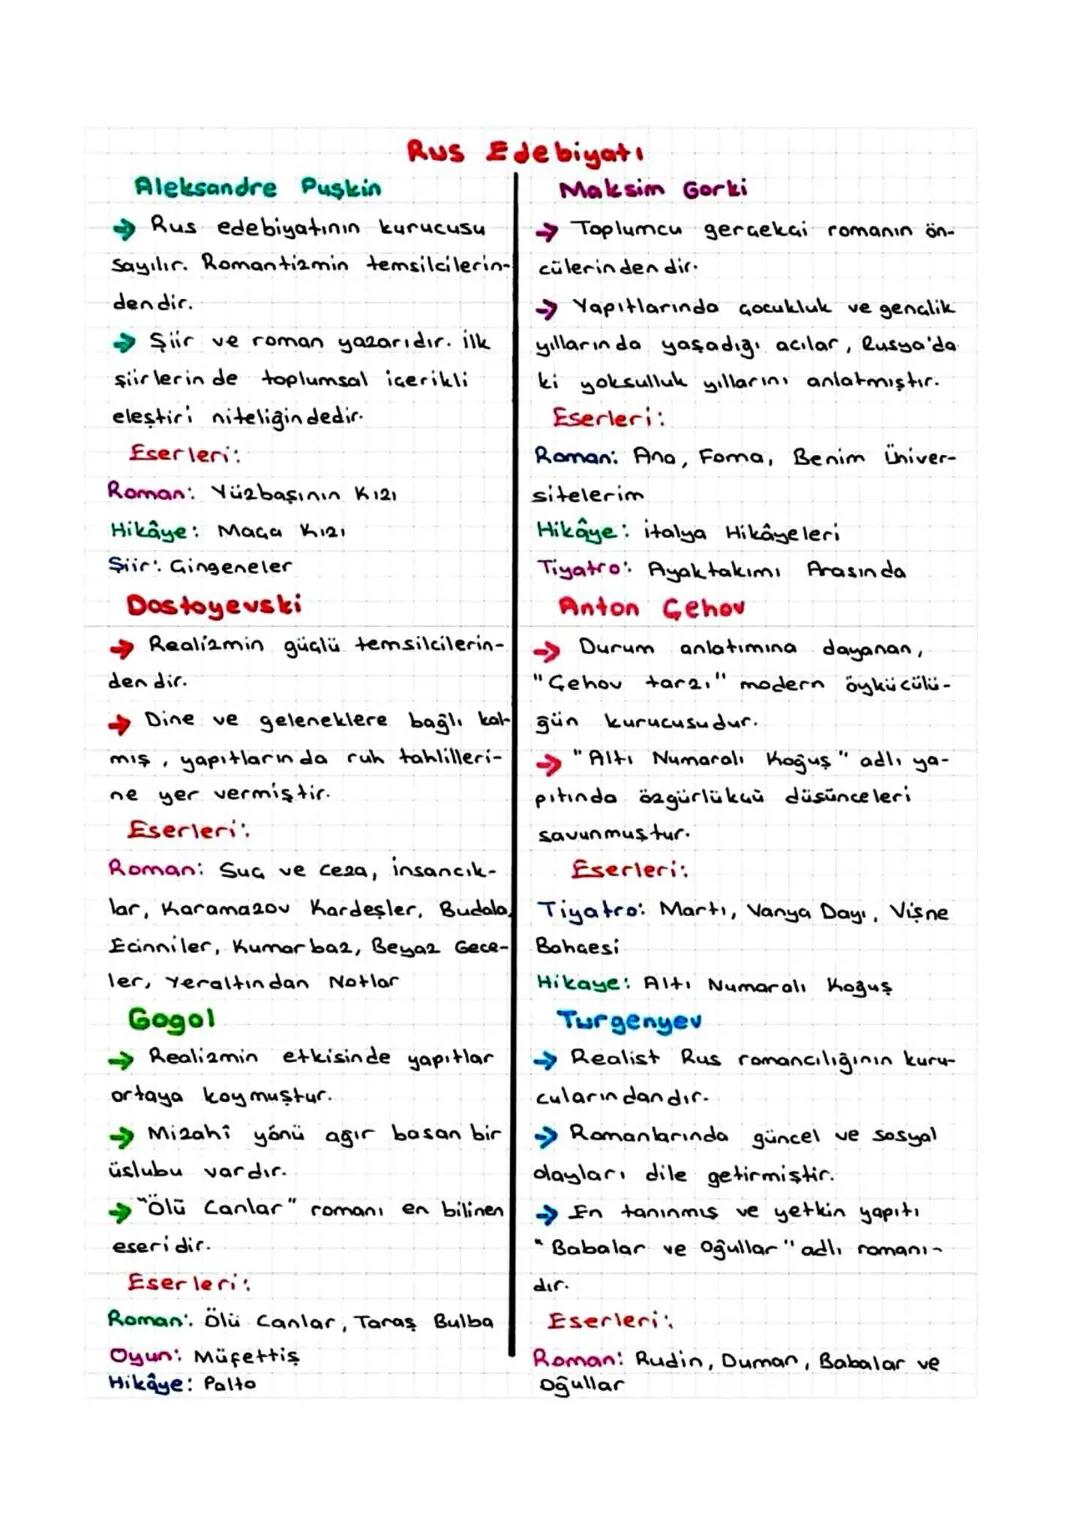 Rus Edebiyatı
Aleksandre Puşkin
→ Rus edebiyatının kurucusu
sayılır. Romantizmin temsilcilerin-
dendir.
→ Şiir ve roman yazarıdır. İlk
şiirlerinde toplumsal içerikli
eleştiri niteliğindedir.
Eserleri:
Roman: Yüzbaşının Kızı
Hikâye: Maça Kızı
Şiir: Çingeneler
Dostoyevski
→ Realizmin güçlü temsilcilerin-
dendir.
→ Dine ve geleneklere bağlı kal-
mış, yapıtlarında ruh tahlilleri-
ne yer vermiştir.
Eserleri:
Roman: Suç ve Ceza, İnsancık-
lar, Karamazov Kardeşler, Budala,
Ecinniler, Kumarbaz, Beyaz Gece-
ler, Yeraltından Notlar
Gogol
→ Realizmin etkisinde yapıtlar
ortaya koymuştur.
→ Mizahî yönü ağır basan bir
üslubu vardır.
→ "Ölü Canlar" romanı en bilinen
eseridir.
Eserleri:
Roman: Ölü Canlar, Taraş Bulba
Oyun: Müfettiş
Hikâye: Palto
Maksim Gorki
→ Toplumcu gerçekçi romanın ön-
cülerindendir.
→ Yapıtlarında çocukluk ve gençlik
yıllarında yaşadığı acılar, Rusya'da
ki yoksulluk yıllarını anlatmıştır.
Eserleri:
Roman: Ana, Foma, Benim Üniver-
sitelerim
Hikâye: İtalya Hikâyeleri
Tiyatro: Ayaktakımı Arasında
Anton Çehov
→ Durum anlatımına dayanan,
"Çehov tarzı" modern öykücülü-
ğün kurucusudur.
→ "Altı Numaralı Koğuş" adlı ya-
pıtında özgürlükçü düşünceleri
savunmuştur.
Eserleri:
Tiyatro: Martı, Vanya Dayı, Vişne
Bahçesi
Hikaye: Altı Numaralı Koğuş
Turgenyev
→ Realist Rus romancılığının kuru-
cularındandır.
→ Romanlarında güncel ve sosyal
olayları dile getirmiştir.
→ En tanınmış ve yetkin yapıtı
"Babalar ve Oğullar" adlı romanı-
dır.
Eserleri:
Roman: Rudin, Duman, Babalar ve
Oğullar